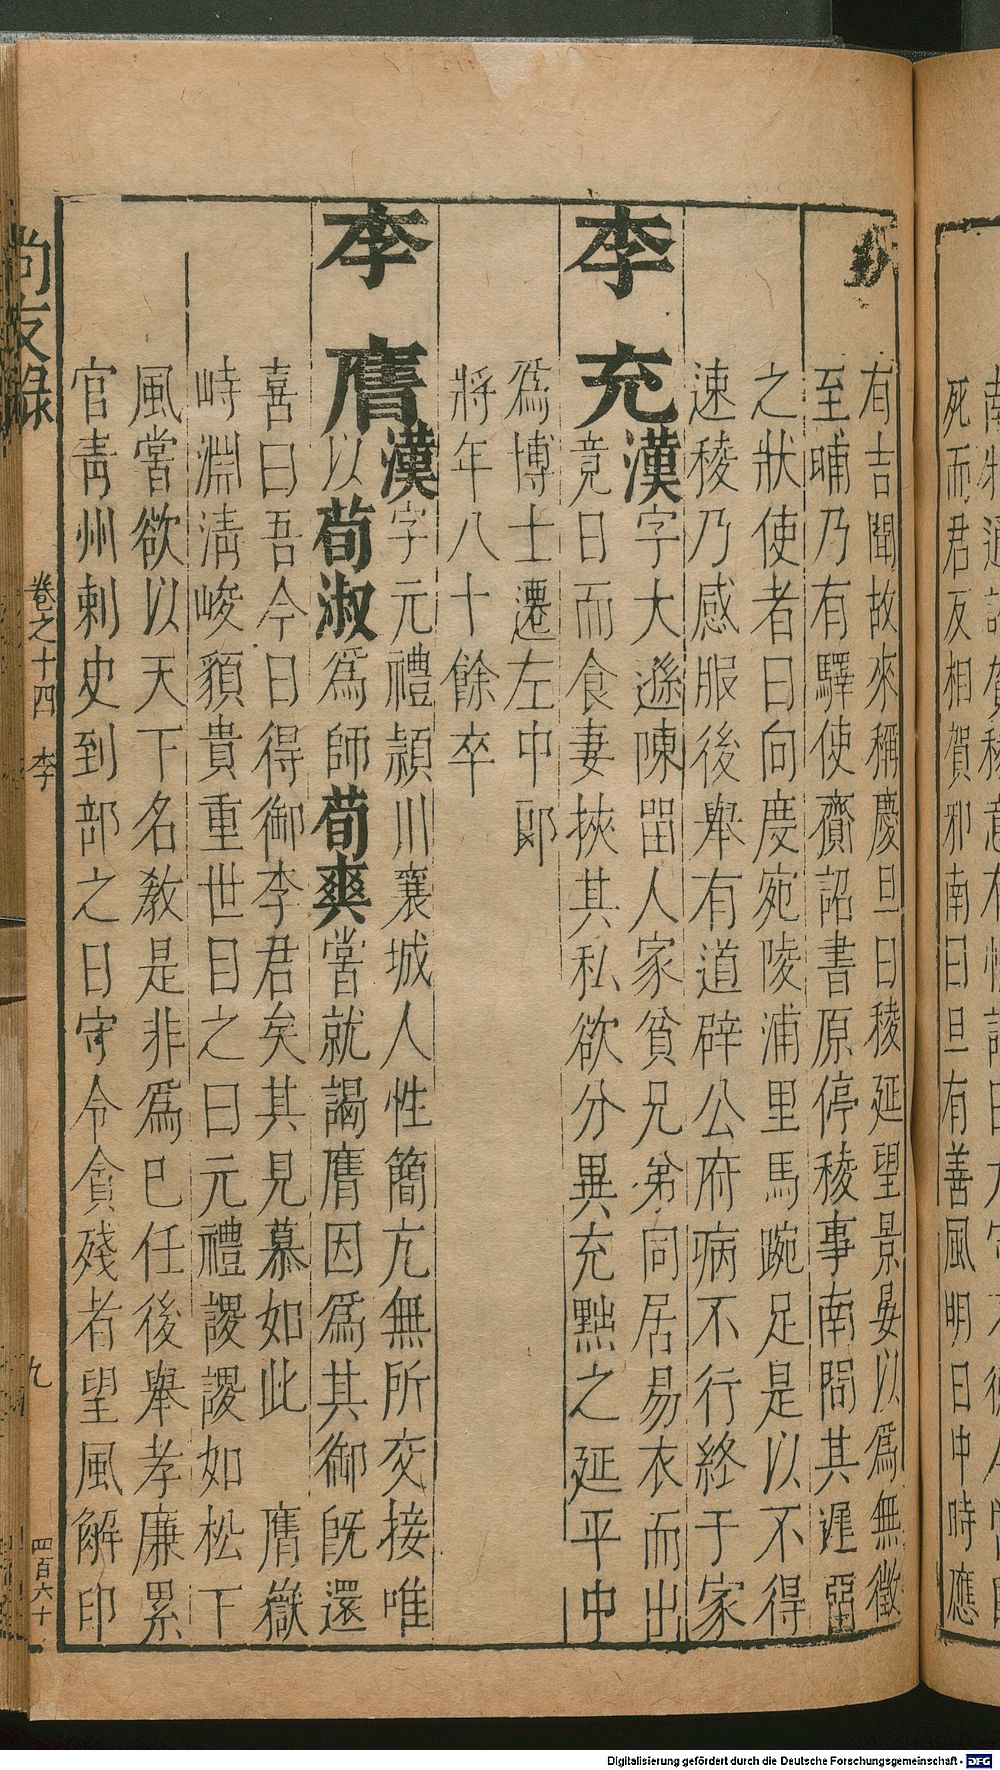 死而君反相賀邪南曰旦有善風明日中時應
有吉聞故來稱慶旦日稜延望景晏以爲無徵
至晡乃有驛使齎詔書原停稜事南問其遲囼
之狀使者曰向度宛陵浦里馬踠足是以不得
速稜乃感服後舉有道辟公府病不行終于家
李充漢字大遜陳畱人家貧兄弟同居易衣而出
竟日而食妻挾其私欲分異充黜之延平中
爲博士遷左中郎
將年八十餘卒
李膺漢字元禮潁川襄城人性簡亢無所交接唯
以荀淑爲師荀爽嘗就謁膺因爲其御旣還
喜曰吾今日得御李君矣其見慕如此 膺嶽
峙淵淸峻貌貴重世目之曰元禮謖謖如松下
風嘗欲以天下名敎是非爲已任後舉孝廉累
官靑州刺史到部之日守令貪殘者望風解印
尚友錄 卷之十四 李 九 四百六十
Digitalisierung gefördert durch die Deutsche Forschungsgemeinschaft - DFG